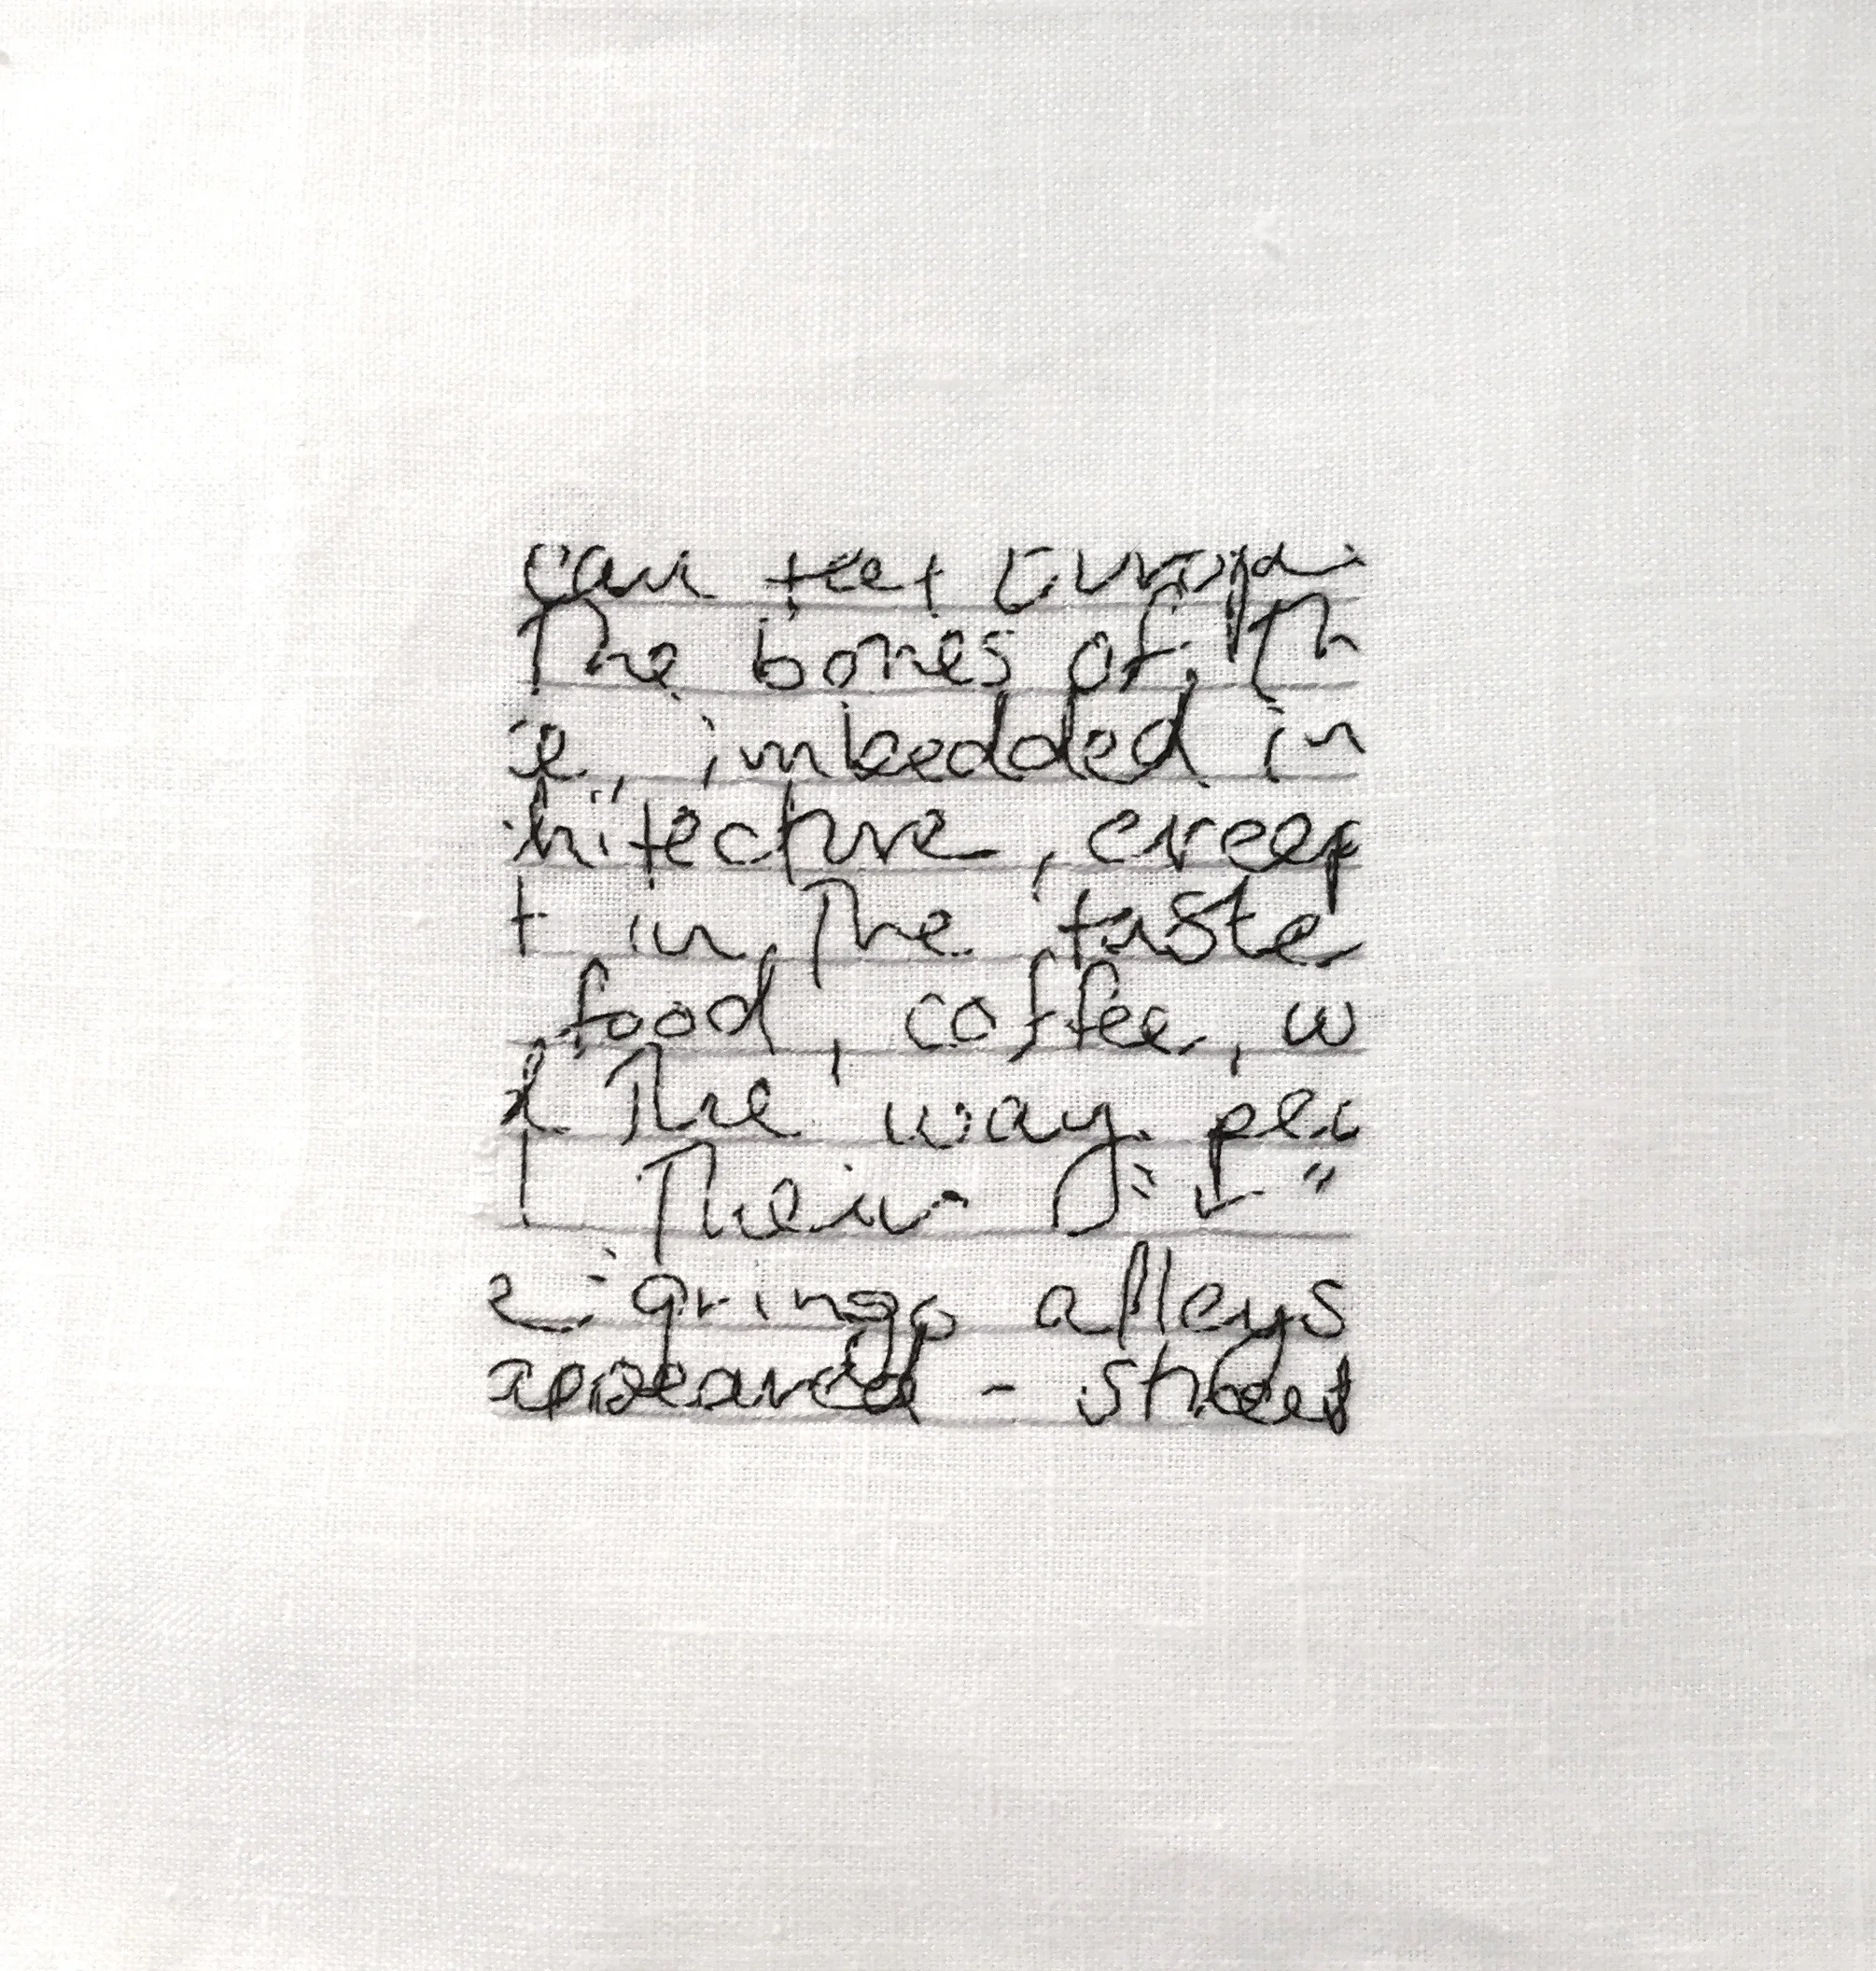 can feel Europ
The bones of Th
e, imbedded in
hitecture, creep
t in The taste
food, coffee, w
d The way peo
Their
e gringo alleys
appeared - street